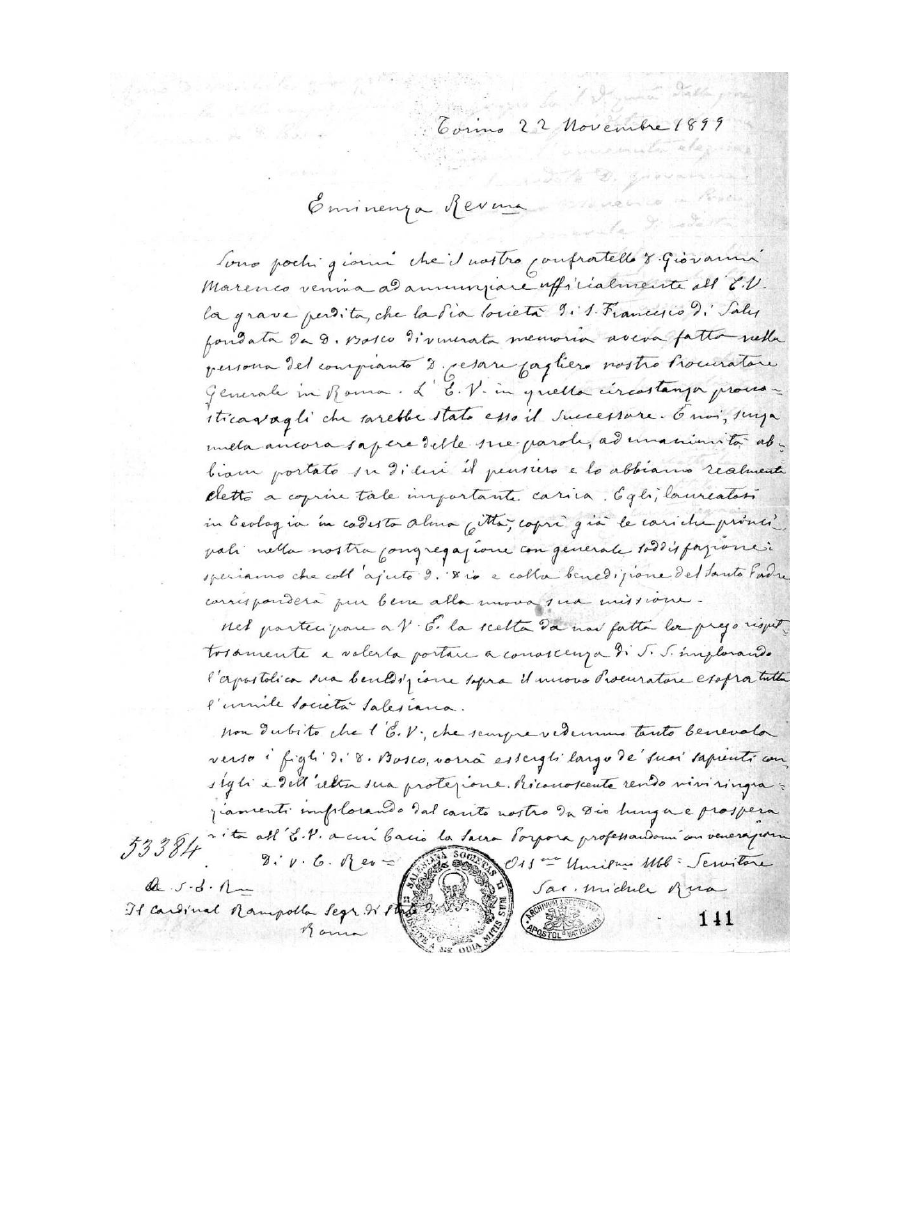 Torino 22 Novembre 1899
Eminenza Rev.ma
Sono pochi giorni che il nostro Confratello D. Giovanni
Marenco veniva ad annunziare ufficialmente all'E.V.
la grave perdita, che la Pia Società di S. Francesco di Sales
fondata da D. Bosco di venerata memoria aveva fatta nella
persona del compianto D. Cesare Cagliero nostro Procuratore
Generale in Roma. L'E.V. in quella circostanza prono=
sticavagli che sarebbe stato esso il Successore. E noi, senza
nulla ancora sapere delle sue parole, ad unanimità ab-
biam portato su di lui il pensiero e lo abbiamo realmente
eletto a coprire tale importante carica. Egli, laureatosi
in Teologia in codesta alma Città, coprì già le cariche princi-
pali nella nostra Congregazione con generale soddisfazione:
speriamo che coll'ajuto di Dio e colla benedizione del Santo Padre
corrisponderà pur bene alla nuova sua missione.
Nel partecipare a V. E. la scelta da noi fatta la prego rispet-
tosamente a volerla portare a conoscenza di S. S. implorando
l'apostolica sua benedizione sopra il nuovo Procuratore e sopra tutta
l'umile Società Salesiana.
Non dubito che l'E.V., che sempre vedemmo tanto benevola
verso i figli di D. Bosco, vorrà essergli largo de' suoi sapienti con
sigli e dell' sua protezione. Riconoscente rendo vivi ringra=
ziamenti implorando dal canto nostro da Dio lunga e prospera
vita all'E.V. a cui bacio la Sacra Porpora professandomi con venerazione
53384
Di V. E. Rev=
Umil.mo Servitore
Sac. Michele Rua
A S. E. R.
Il Cardinal Rampolla Segr. di Stato di S.S.
Roma
SALESIANA SOCIETAS
DISCITE A ME QUIA MITIS SUM
ARCHIVUM SECRETUM
APOSTOL. VATICANUM
141